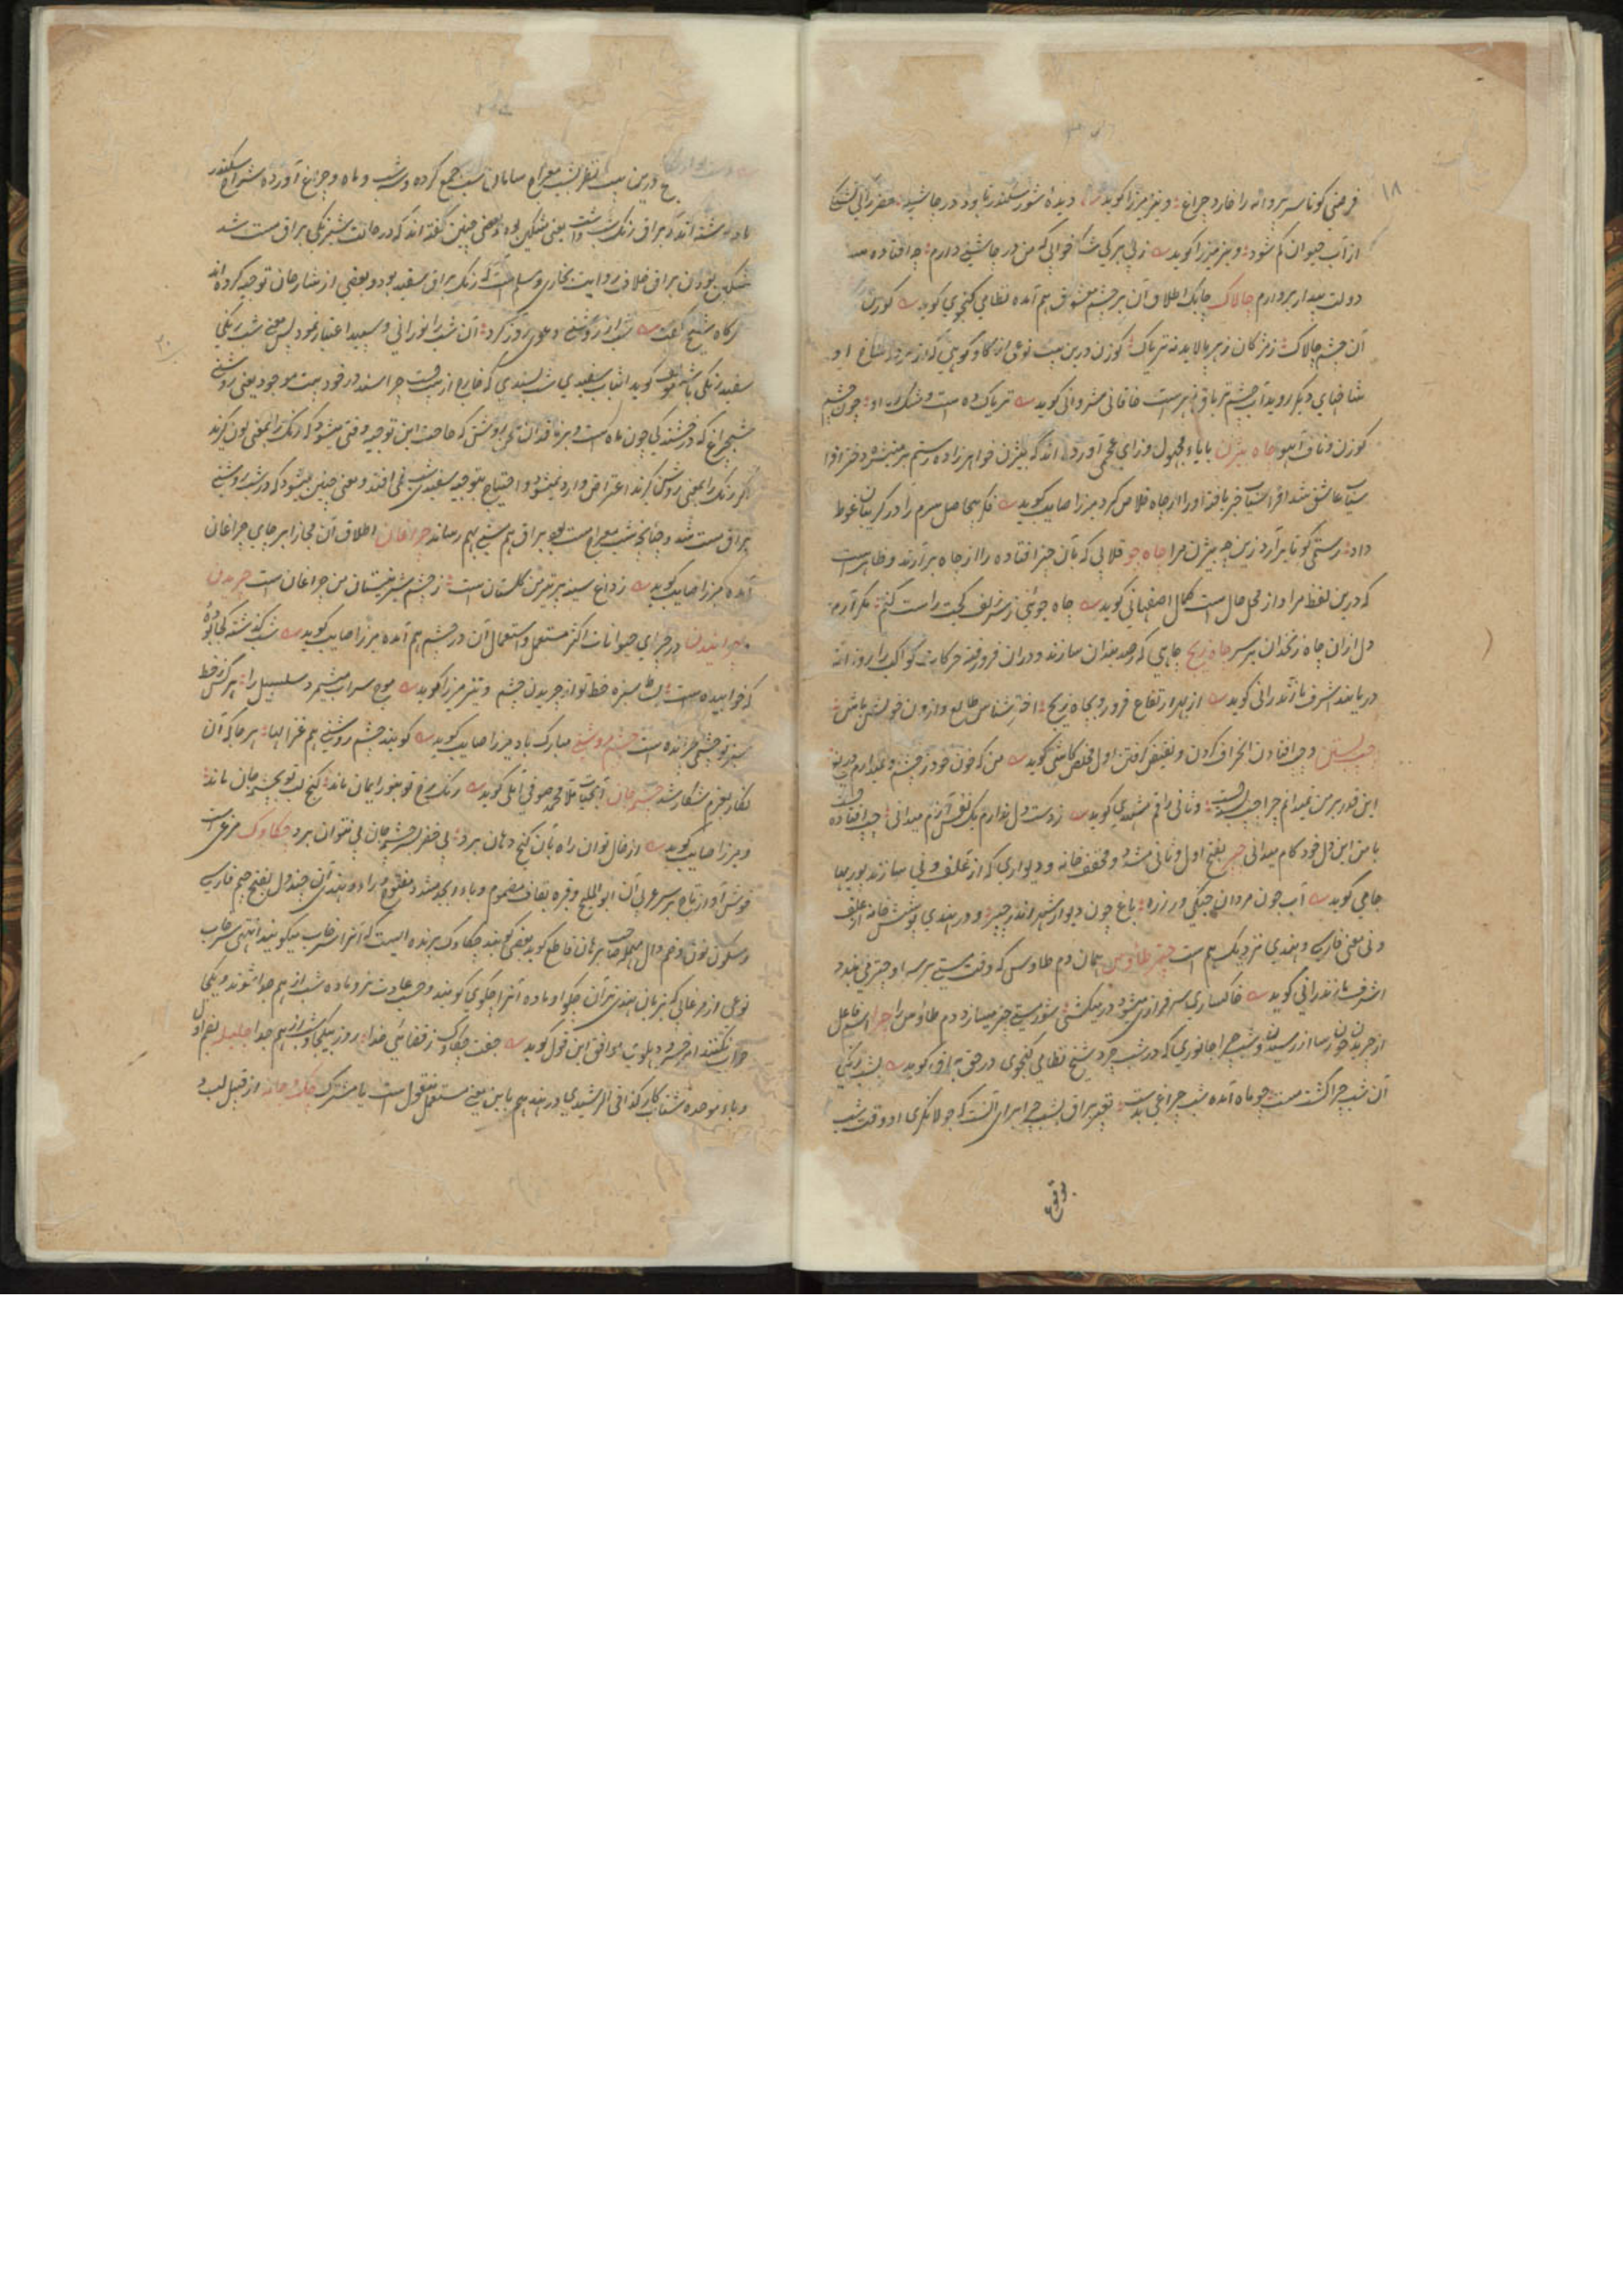 ۱۸
فرضی کو تا سر پروانه را خارد چراغ و نیز میرزا گوید دیده شور سکندر تا بود در چاشنی
از آب حیوان کم شود و نیز میرزا گوید ز بی برگی خوابی که من در چاشنی دارم
دولت بیدار بردارم چالاک چابک اطلاق آن بر چشم معشوق هم آمده نظامی گنجوی گوید گوزن
آن چشم چالاک ز مژگان زهر پالاید نه تریاک گوزن درین بیت نوعی از گاو کوهی که از سر شاخ او
شاخهای دیگر روید آب چشم تریاق زهر است خاقانی شروانی گوید تریاک ده است و مشک او چون چشم
گوزن و ناف آهو چاه بیژن بایاء مجهول و زای عجمی آورده اند که بیژن خواهرزاده رستم بر منیژه دختر افرا
سیاب عاشق شد افراسیاب خبر یافته او را از چاه خلاص کرد میرزا صایب گوید فکر بیحاصل سرم را در گریبان غوطه
داد رستمی کو تا برآرد زین چه بیژن مرا چاه جو قلابی که بآن چیز افتاده را از چاه برآرند و ظاهر است
که درین لفظ مرا و از محل حال است کمال اصفهانی گوید چاه جوئی ز سر زلف کجت راست کنم مگر آرم
دل ازان چاه زنخدان بر سر چاه زیج چاهی که رصدبندان سازند و دران فرو رفته حرکات کواکب را روزانه
دریابند اشرف مازندرانی گوید از بهر ارتفاع فرو رو بچاه زیج اختر شناس طالع وارون خویش باش
چپ بستن و چپ افتادن انحراف کردن و نقیض گرفتن اول مخلص کاشی گوید من که خون خود ز چشم
این قدر بر من نمیدانم چرا چپ بسته است و ثانی راقم مشهدی گوید ز دست دل ندارم یک نفس آرام میدانی چپ افتاده است
با من این دل خود کام میدانی چپر بفتح اول و ثانی مشدد و مخفف خانه و دیواری که از علف و نی سازند
جامی گوید آب چون مردان جنگی در زره باغ چون دیوار شهر اندر چپر و در هندی پوشش خانه از علف
و نی معنی فارسی و هندی نزدیک هم است چتر طاؤس همان دم طاوس که وقت مستی بر سر او چتر می بندد
اشرف مازندرانی گوید خاکساری سرفرازی میشود در میکشی شور مستی چتر میسازد دم طاؤس را چرا اسم فاعل
از چریدن چون رسا از رسیدن و شب چرا جانوری که در شب چرد شیخ نظامی گنجوی در حق براق گوید
آن شب چرا گشت مست چو ماه آمده شب چراغی بدست تعبیر براق بشب چرا برای آنست که جولانگری او وقت شب
بوقوع
درین بیت نظر بشب معراج سامان شب جمع کرده و شب و ماه و چراغ آورده شراح سکندر
نامه نوشته اند که براق رنگ شب داشت یعنی مشکین بوده و بعضی چنین گفته اند که در حالت شبرنگی براق مست شد
مشکین بودن براق خلاف روایت بخاری و مسلم است که رنگ براق سفید بود و بعضی از شارحان توجیه کرده اند
هرگاه شیخ گفت شب از روشنی دعوی روز کرد آن شب را نورانی و سپید اعتبار نمود پس معنی شب رنگی
سفید رنگی باشد گوید اثبات سفیدی شب پسندی که فارغ از
شبچراغ که درخشندگی چون ماه است و بر ناقدان سخن روشن که حاجت این توجیه وقتی میشود که رنگ را بمعنی لون گیرند
اگر رنگ را بمعنی روش گیرند اعتراض وارد نمیشود و احتیاج بتوجیه سفیدی شب نمی افتد و معنی چنین میشود که در شب روشنی
براق مست شد و چنانچه شب معراج مست بود براق هم مستی بهم رساند چراغان اطلاق آن مجازا بر جای چراغان
آمده میرزا صایب گوید ز داغ سینه پر آتش من گلستان است ز چشم شیر نیستان من چراغان است چریدن
و چرانیدن در چرای حیوانات اکثر مستعمل و استعمال آن در چشم هم آمده میرزا صایب گوید شب گذشته کجا بوده
که خوابیده است سبزه خط تو از چریدن چشم و نیز میرزا گوید موج سراب میشمرد سلسبیل را هر کس خط
سبز تو چشمی چرانده است چشم روشنی مبارک باد میرزا صایب گوید گویند چشم روشنی هم غزالها هرجا که آن
نگار بعزم شکار شد چشمه جان آبحیات ملا محمد صوفی آملی گوید رنگ رخ تو بنور ایمان ماند کنج لب تو بچشمه جان ماند
و میرزا صایب گوید از خال توان راه بآن کنج دهان برد بی خضر بسرچشمه جان پی نتوان برد چکاوک مرغی است
خوش آواز تاج بر سر عربی آن ابو الملیح و قبره بقاف مضموم و باء ابجد مشدد مفتوح و راء و هندی آن چندول بفتح جیم فارسی
و سکون نون و ضم دال مهمله صاحب برهان قاطع گوید بعضی گویند چکاوک پرنده ایست که آنرا سرخاب میگویند انتهی سرخاب
نوعی از مرغابی که بزبان هندی نر آن چکوا و ماده آنرا چکوی گویند و حسب عادت نر و ماده شب از هم جدا شوند و یکجا
خواب نکنند امیر خسرو دهلوی موافق این قول گوید جفت چکاوک ز قضای خدا روز بیکجا و شب از هم جدا چلپله بضم اول
و باء موحده شتاب کار کذا فی الرشیدی در هند هم باین معنی مستعمل منقول است یا مشترک چک و چانه از قبیل لب و